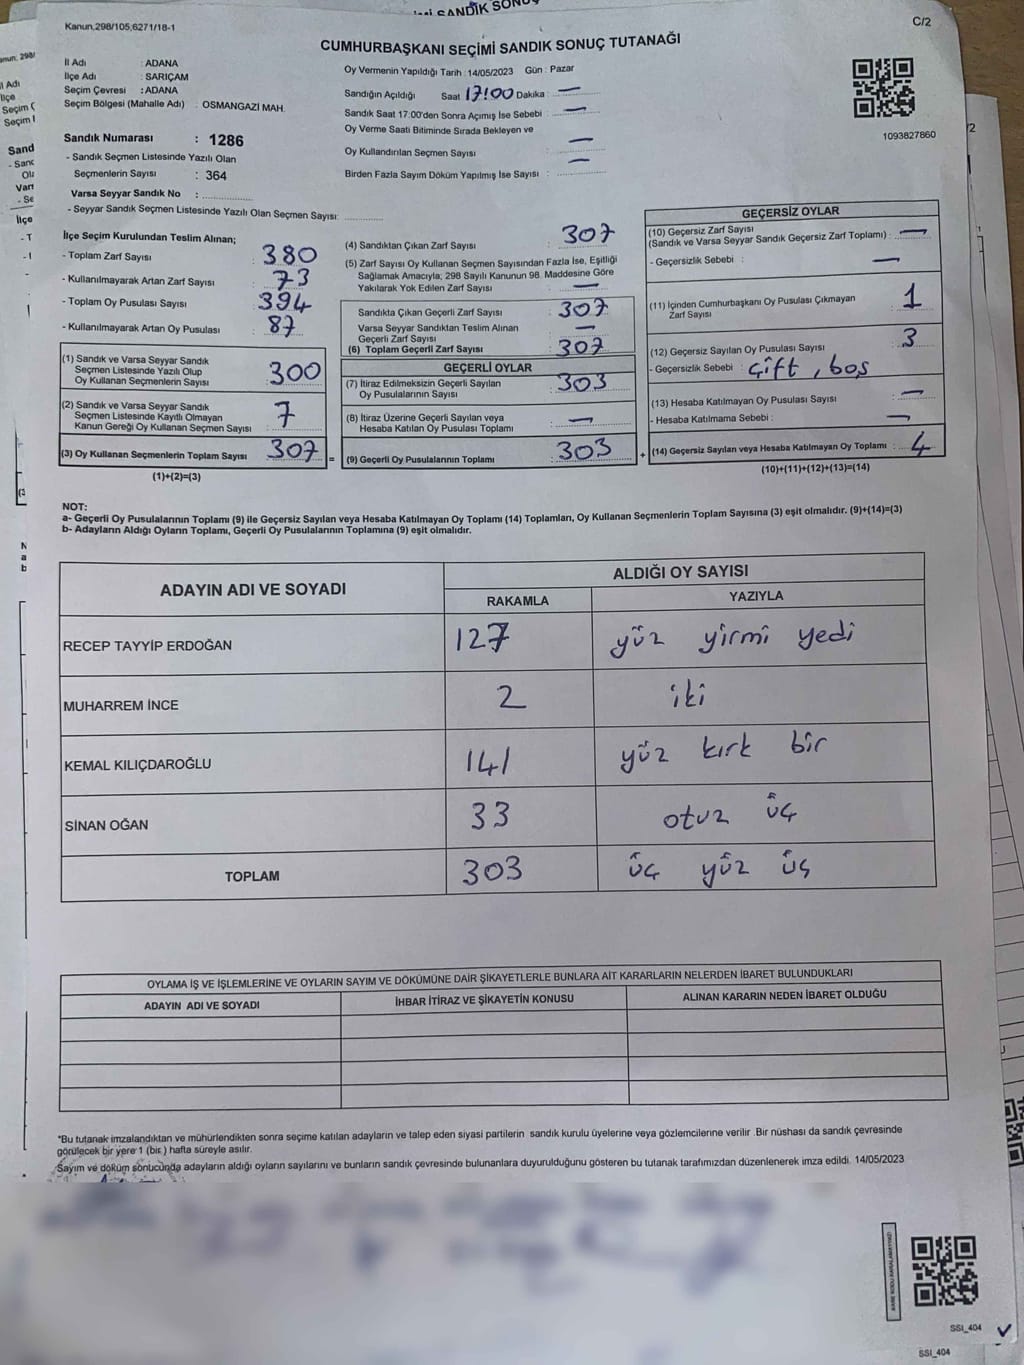 SANDIK SONUÇ
Kanun,298/105,6271/18-1
C/2
CUMHURBAŞKANI SEÇİMİ SANDIK SONUÇ TUTANAĞI
İl Adı : ADANA
İlçe Adı : SARIÇAM
Seçim Çevresi : ADANA
Seçim Bölgesi (Mahalle Adı) : OSMANGAZİ MAH.
Sandık Numarası : 1286
- Sandık Seçmen Listesinde Yazılı Olan
Seçmenlerin Sayısı : 364
Varsa Seyyar Sandık No :
- Seyyar Sandık Seçmen Listesinde Yazılı Olan Seçmen Sayısı:
Oy Vermenin Yapıldığı Tarih : 14/05/2023 Gün : Pazar
Sandığın Açıldığı Saat 17:00 Dakika : —
Sandık Saat 17:00'den Sonra Açımış İse Sebebi : —
Oy Verme Saati Bitiminde Sırada Bekleyen ve
Oy Kullandırılan Seçmen Sayısı : —
Birden Fazla Sayım Döküm Yapılmış İse Sayısı : —
1093827860
İlçe Seçim Kurulundan Teslim Alınan;
- Toplam Zarf Sayısı : 380
- Kullanılmayarak Artan Zarf Sayısı : 73
- Toplam Oy Pusulası Sayısı : 394
- Kullanılmayarak Artan Oy Pusulası : 87
(1) Sandık ve Varsa Seyyar Sandık
Seçmen Listesinde Yazılı Olup
Oy Kullanan Seçmenlerin Sayısı : 300
(2) Sandık ve Varsa Seyyar Sandık
Seçmen Listesinde Kayıtlı Olmayan
Kanun Gereği Oy Kullanan Seçmen Sayısı : 7
(3) Oy Kullanan Seçmenlerin Toplam Sayısı : 307
(1)+(2)=(3)
=
(4) Sandıktan Çıkan Zarf Sayısı : 307
(5) Zarf Sayısı Oy Kullanan Seçmen Sayısından Fazla İse, Eşitliği
Sağlamak Amacıyla; 298 Sayılı Kanunun 98. Maddesine Göre
Yakılarak Yok Edilen Zarf Sayısı : —
Sandıkta Çıkan Geçerli Zarf Sayısı : 307
Varsa Seyyar Sandıktan Teslim Alınan
Geçerli Zarf Sayısı : —
(6) Toplam Geçerli Zarf Sayısı : 307
GEÇERLİ OYLAR
(7) İtiraz Edilmeksizin Geçerli Sayılan
Oy Pusulalarının Sayısı : 303
(8) İtiraz Üzerine Geçerli Sayılan veya
Hesaba Katılan Oy Pusulası Toplamı : —
(9) Geçerli Oy Pusulalarının Toplamı : 303
+
GEÇERSİZ OYLAR
(10) Geçersiz Zarf Sayısı
(Sandık ve Varsa Seyyar Sandık Geçersiz Zarf Toplamı) : —
- Geçersizlik Sebebi : —
(11) İçinden Cumhurbaşkanı Oy Pusulası Çıkmayan
Zarf Sayısı : 1
(12) Geçersiz Sayılan Oy Pusulası Sayısı : 3
- Geçersizlik Sebebi : çift, boş
(13) Hesaba Katılmayan Oy Pusulası Sayısı : —
- Hesaba Katılmama Sebebi : —
(14) Geçersiz Sayılan veya Hesaba Katılmayan Oy Toplamı : 4
(10)+(11)+(12)+(13)=(14)
NOT:
a- Geçerli Oy Pusulalarının Toplamı (9) ile Geçersiz Sayılan veya Hesaba Katılmayan Oy Toplamı (14) Toplamları, Oy Kullanan Seçmenlerin Toplam Sayısına (3) eşit olmalıdır. (9)+(14)=(3)
b- Adayların Aldığı Oyların Toplamı, Geçerli Oy Pusulalarının Toplamına (9) eşit olmalıdır.
ADAYIN ADI VE SOYADI
ALDIĞI OY SAYISI
RAKAMLA YAZIYLA
RECEP TAYYİP ERDOĞAN 127 yüz yirmi yedi
MUHARREM İNCE 2 iki
KEMAL KILIÇDAROĞLU 141 yüz kırk bir
SİNAN OĞAN 33 otuz üç
TOPLAM 303 üç yüz üç
OYLAMA İŞ VE İŞLEMLERİNE VE OYLARIN SAYIM VE DÖKÜMÜNE DAİR ŞİKAYETLERLE BUNLARA AİT KARARLARIN NELERDEN İBARET BULUNDUKLARI
ADAYIN ADI VE SOYADI İHBAR İTİRAZ VE ŞİKAYETİN KONUSU ALINAN KARARIN NEDEN İBARET OLDUĞU
*Bu tutanak imzalandıktan ve mühürlendikten sonra seçime katılan adayların ve talep eden siyasi partilerin sandık kurulu üyelerine veya gözlemcilerine verilir .Bir nüshası da sandık çevresinde
görülecek bir yere 1 (bir) hafta süreyle asılır.
Sayım ve döküm sonucunda adayların aldığı oyların sayılarını ve bunların sandık çevresinde bulunanlara duyurulduğunu gösteren bu tutanak tarafımızdan düzenlenerek imza edildi. 14/05/2023
SSI_404
SSI_404